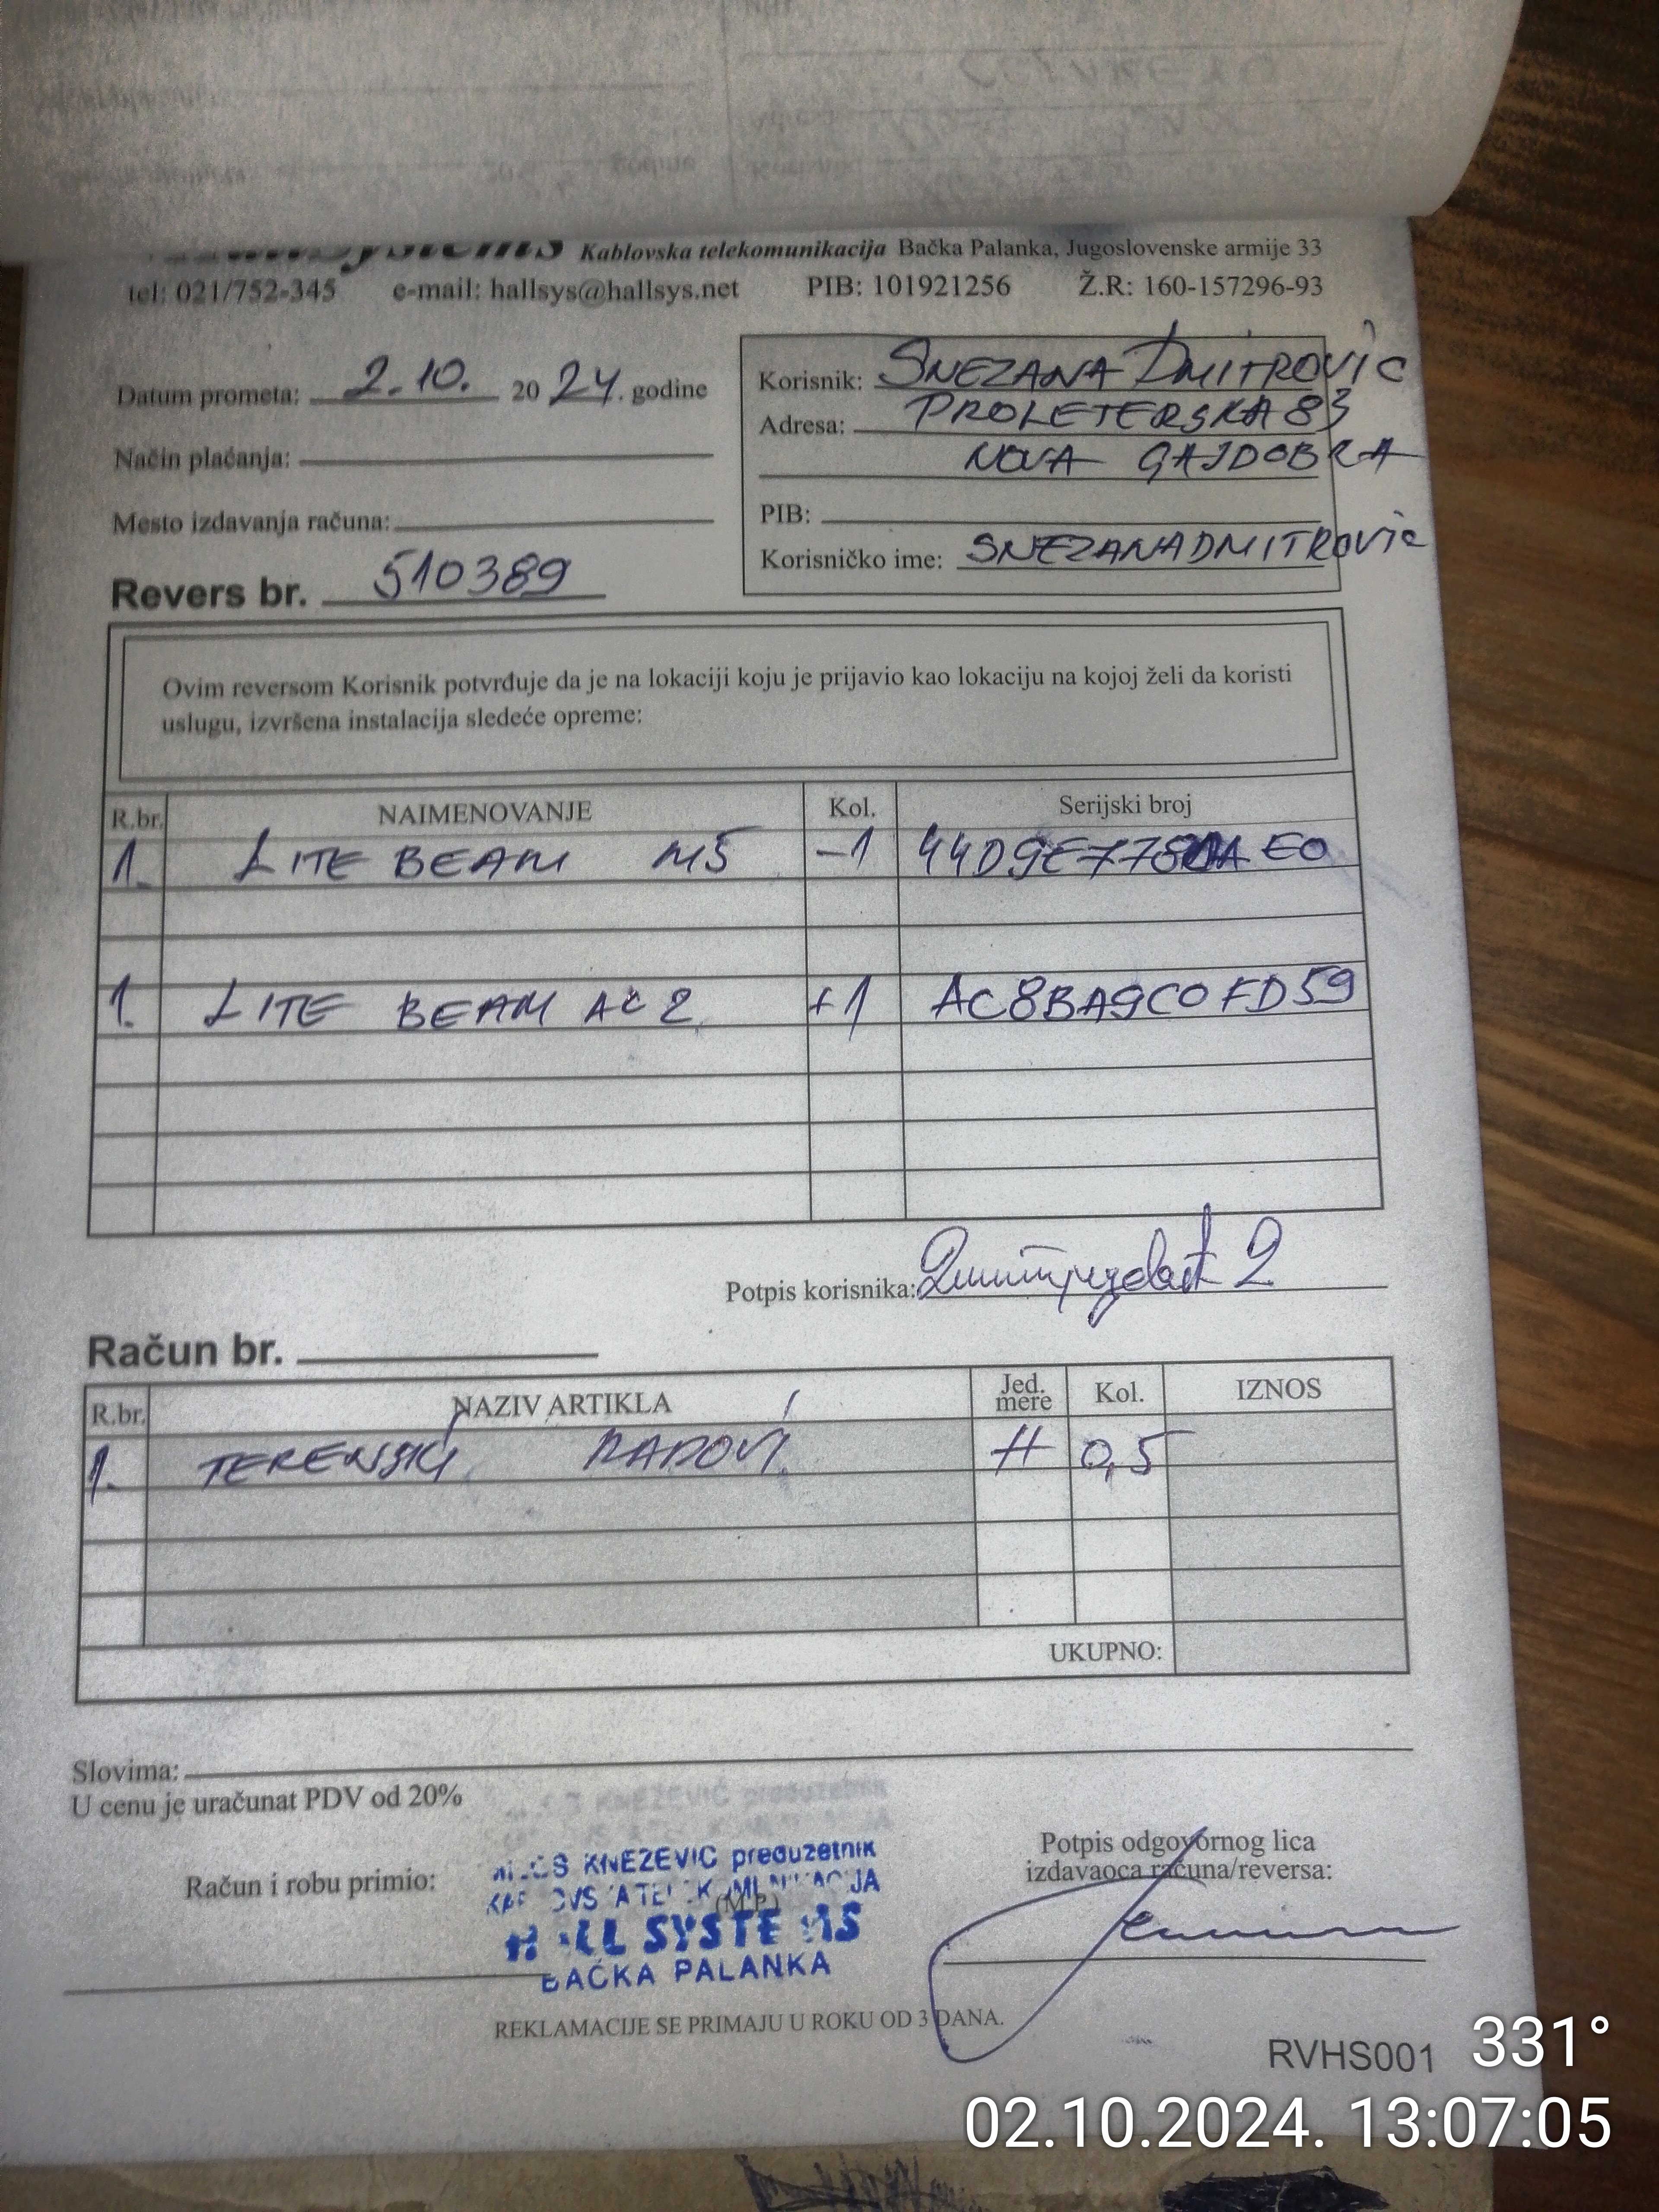 Kablovska telekomunikacija Bačka Palanka, Jugoslovenske armije 33
tel: 021/752-345 e-mail: hallsys@hallsys.net PIB: 101921256 Ž.R: 160-157296-93
Datum prometa: 2.10. 2024. godine
Način plaćanja:
Mesto izdavanja računa:
Revers br. 510389
Korisnik: SNEZANA DMITROVIĆ
Adresa: PROLETERSKA 83
NOVA GAJDOBRA
PIB:
Korisničko ime: SNEZANADMITROVIC
Ovim reversom Korisnik potvrđuje da je na lokaciji koju je prijavio kao lokaciju na kojoj želi da koristi
uslugu, izvršena instalacija sledeće opreme:
R.br. NAIMENOVANJE Kol. Serijski broj
1. LITE BEAM M5 -1
1. LITE BEAM AC 2 +1 AC8BA9C0FD59
Potpis korisnika:
Račun br.
R.br. NAZIV ARTIKLA Jed. mere Kol. IZNOS
1. TERENSKI RADOVI H 0,5
UKUPNO:
Slovima:
U cenu je uračunat PDV od 20%
Račun i robu primio:
KNEZEVIC preduzetnik
(M.P.)
HALL SYSTEMS
BAČKA PALANKA
Potpis odgovornog lica
izdavaoca računa/reversa:
REKLAMACIJE SE PRIMAJU U ROKU OD 3 DANA.
RVHS001 331°
02.10.2024. 13:07:05